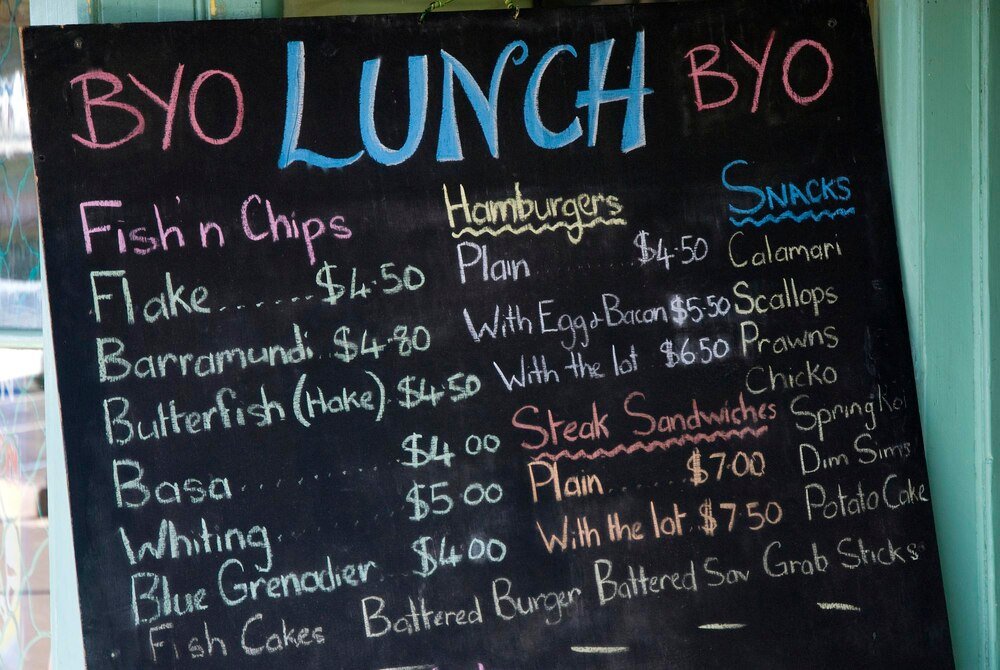 BYO LUNCH BYO
Fish'n Chips
Flake ....... $4.50
Barramundi $4.80
Butterfish (Hake) $4.50
Basa ........ $4.00
Whiting ........ $5.00
Blue Grenadier $4.00
Hamburgers
Plain ........ $4.50
With Egg & Bacon $5.50
With the lot $6.50
Steak Sandwiches
Plain ........ $7.00
With the lot $7.50
SNACKS
Calamari
Scallops
Prawns
Chicko
Spring Rol
Dim Sims
Potato Cake
Fish Cakes Battered Burger Battered Sav Grab Sticks